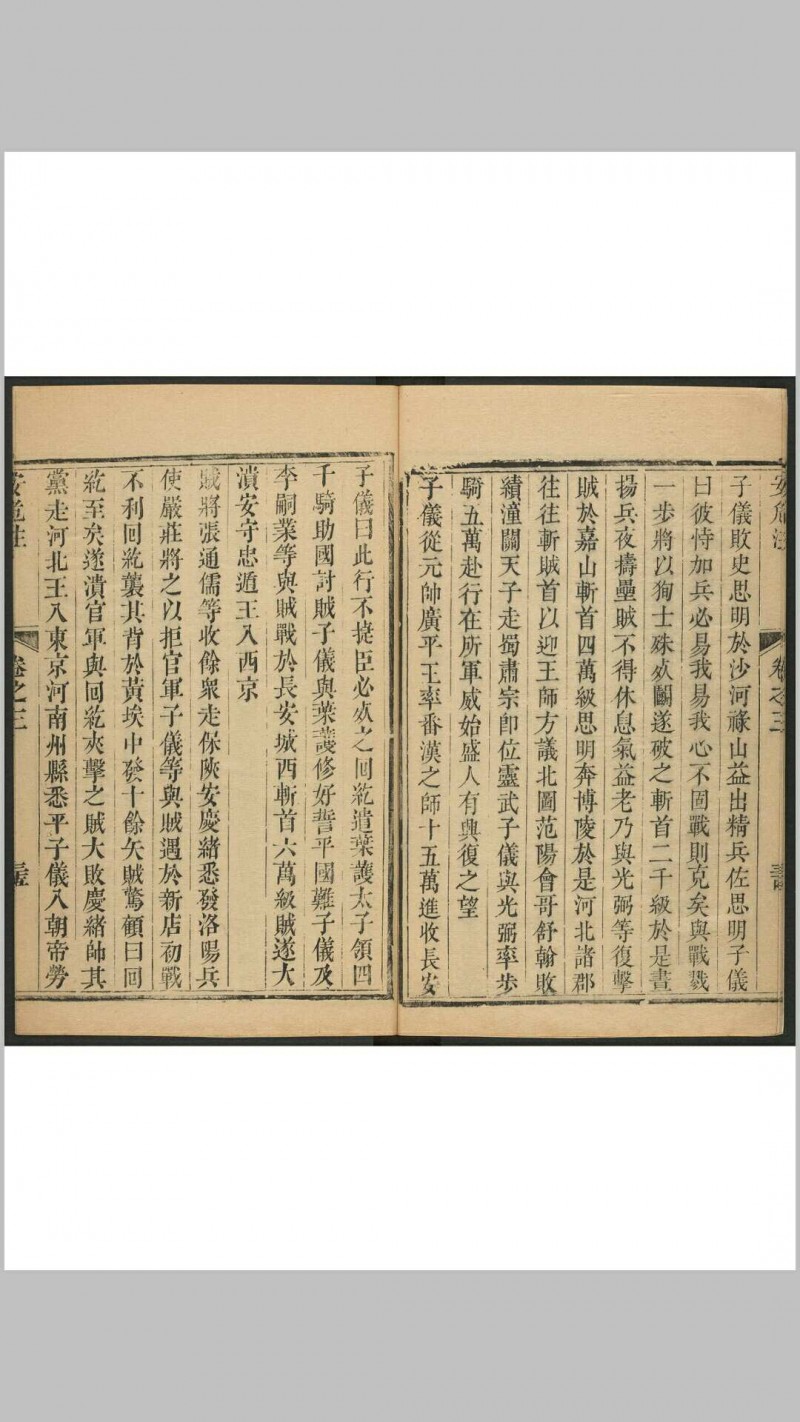 子儀敗史思明於沙河祿山益出精兵佐思明子儀
曰彼恃加兵必易我易我心不固戰則克矣與戰戮
一步將以狥士殊死鬬遂破之斬首二千級於是晝
揚兵夜擣壘賊不得休息氣益老乃與光弼等復擊
賊於嘉山斬首四萬級思明奔博陵於是河北諸郡
往往斬賊首以迎王師方議北圖范陽會哥舒翰敗
續潼關天子走蜀肅宗卽位靈武子儀與光弼率步
騎五萬赴行在所軍威始盛人有興復之望
子儀從元帥廣平王率番漢之師十五萬進收長安
子儀曰此行不捷臣必死之囘紇遣葉護太子領四
千騎助國討賊子儀與葉護修好誓平國難子儀及
李嗣業等與賊戰於長安城西斬首六萬級賊遂大
潰安守忠遁王入西京
賊將張通儒等收餘衆走保陝安慶緒悉發洛陽兵
使嚴莊將之以拒官軍子儀等與賊遇於新店初戰
不利回紇襲其背於黃埃中發十餘矢賊驚顧曰囘
紇至矣遂潰官軍與囘紇夾擊之賊大敗慶緒帥其
黨走河北王入東京河南州縣悉平子儀入朝帝勞
卷之三